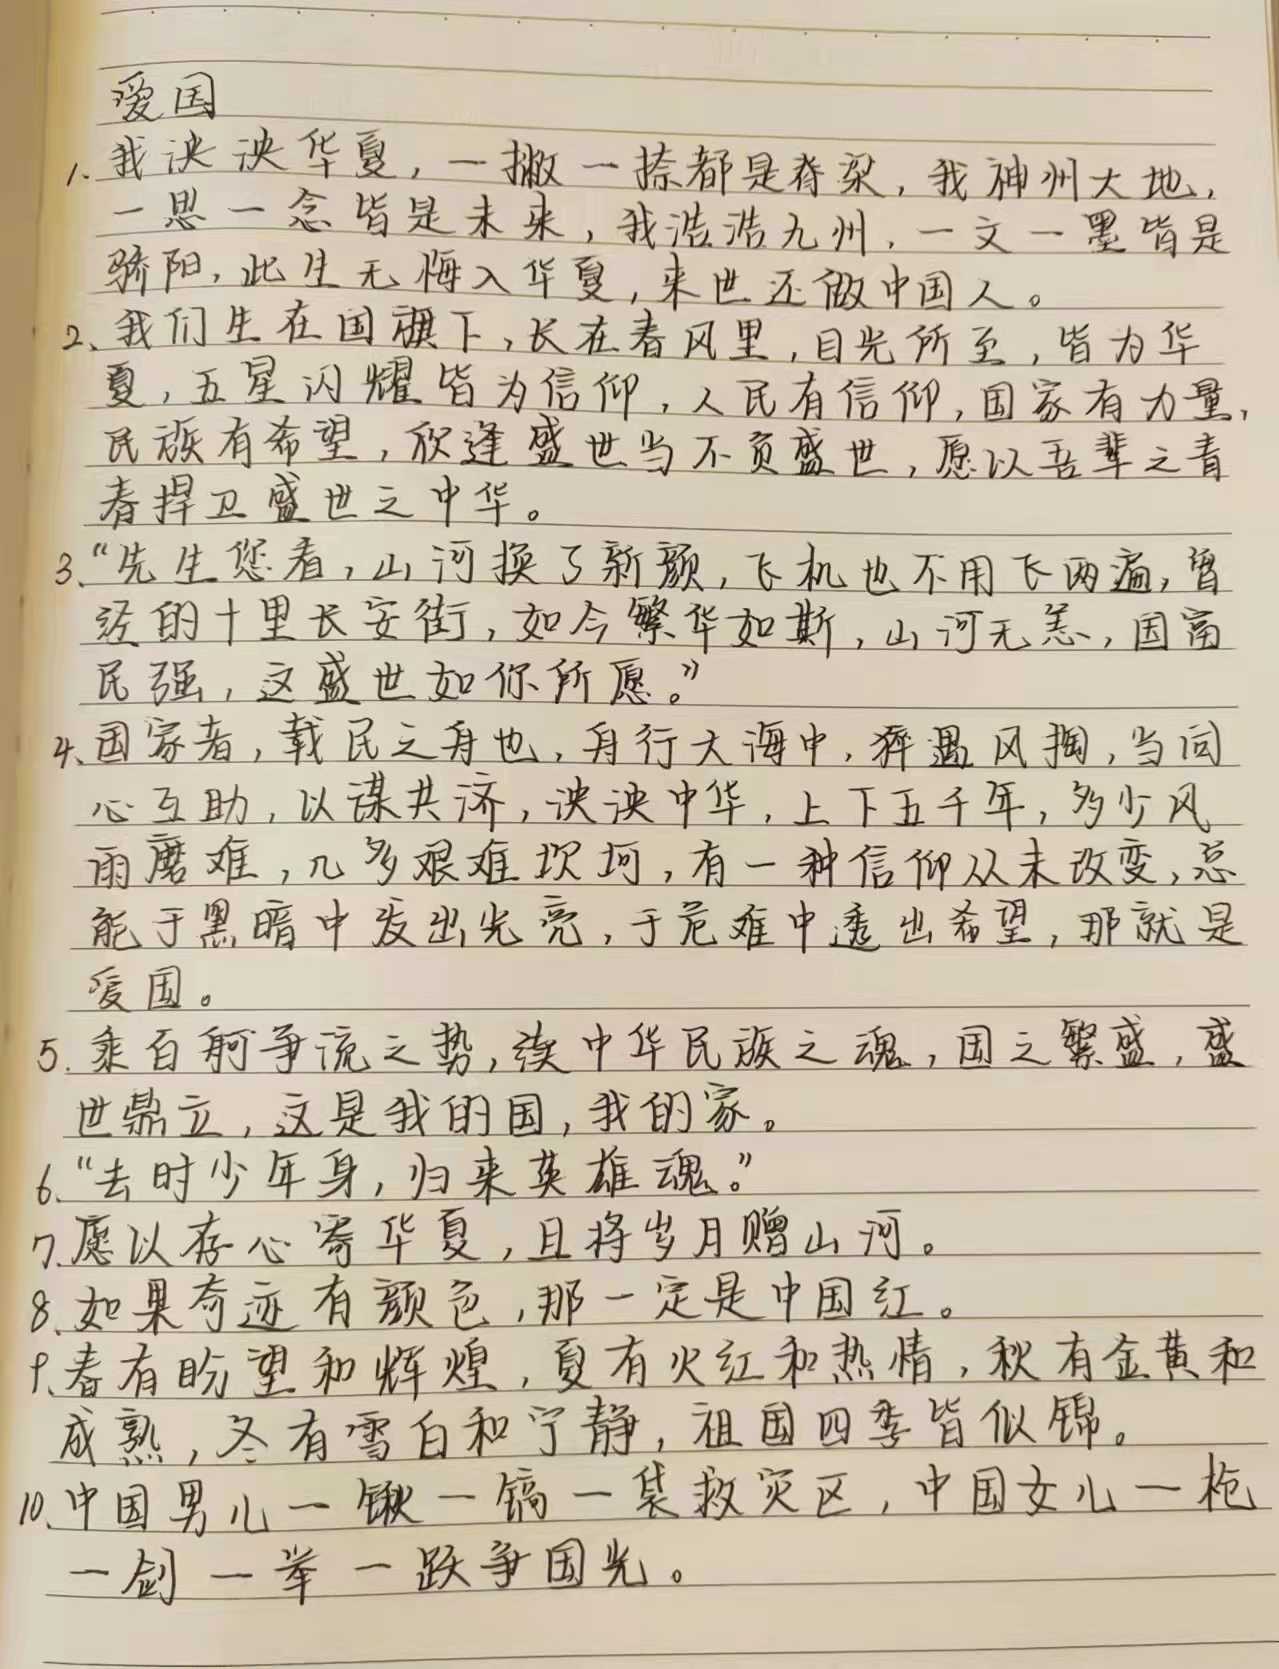 爱国
1. 我泱泱华夏，一撇一捺都是脊梁，我神州大地，
一思一念皆是未来，我浩浩九州，一文一墨皆是
骄阳，此生无悔入华夏，来世还做中国人。
2、我们生在国旗下，长在春风里，目光所至，皆为华
夏，五星闪耀皆为信仰，人民有信仰，国家有力量，
民族有希望，欣逢盛世当不负盛世，愿以吾辈之青
春捍卫盛世之中华。
3、“先生您看，山河换了新颜，飞机也不用飞两遍，曾
经的十里长安街，如今繁华如斯，山河无恙，国富
民强，这盛世如你所愿。”
4、国家者，载民之舟也，舟行大海中，猝遇风
，当同
心互助，以谋共济，泱泱中华，上下五千年，多少风
雨磨难，几多艰难坎坷，有一种信仰从未改变，总
能于黑暗中发出光亮，于危难中透出希望，那就是
爱国。
5. 乘百舸争流之势，续中华民族之魂，国之繁盛，盛
世鼎立，这是我的国，我的家。
6、“去时少年身，归来英雄魂。”
7、愿以存心寄华夏，且将岁月赠山河。
8、如果奇迹有颜色，那一定是中国红。
9、春有盼望和辉煌，夏有火红和热情，秋有金黄和
成熟，冬有雪白和宁静，祖国四季皆似锦。
10、中国男儿一锹一镐一袋救灾区，中国女儿一枪
一剑一举一跃争国光。